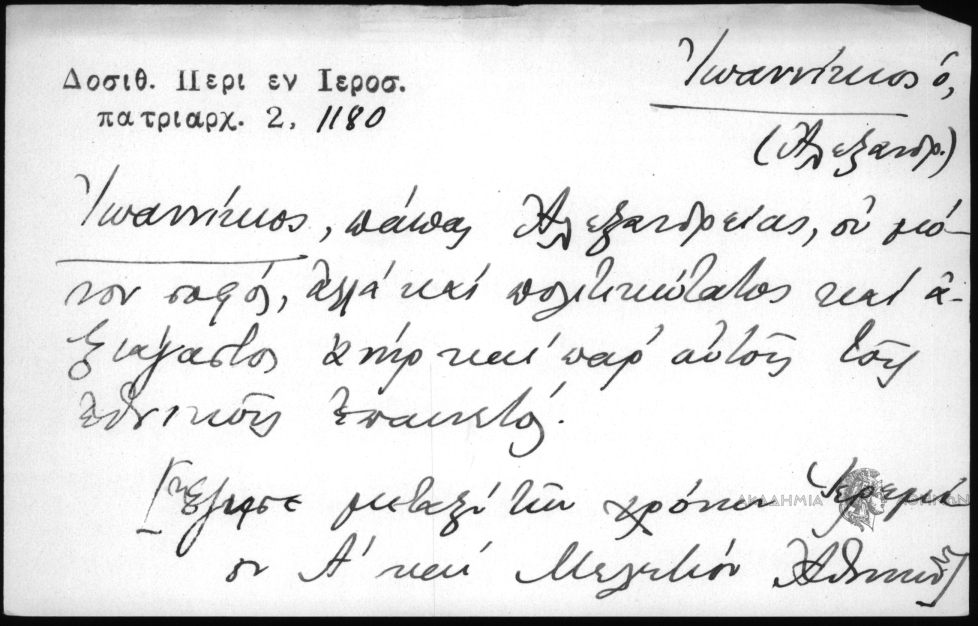 Ἰωαννίκιος ὁ,
Δοσιθ. Περι εν Ιεροσ.
πατριαρχ. 2, 1180
(Ἀλεξανδρ.)
Ἰωαννίκιος, πάπας Ἀλεξανδρείας, οὐ μό-
νον σοφός, ἀλλά καί πολιτικώτατος καί ἀ-
ξιάγαστος ἀνήρ καί παρ' αὐτοῖς τοῖς
ἐθνικοῖς ἐπαινετός.
[Ἔζησε μεταξύ τῶν χρόνων Ἱερεμί
ου Α' καί Μελετίου Ἀθηνῶν]
ΑΚΑΔΗΜΙΑ ΑΘΗΝΩΝ